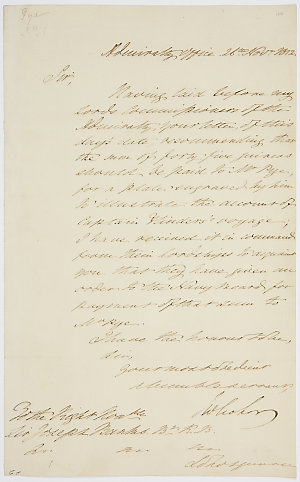 Pye
Admiralty Office 26th Novr. 1812
Sir,
Having laid before my
Lords Commissioners of the
Admiralty, your letter of this
day's date, recommending that
the sum of forty five guineas
should be paid to Mr Pye,
for a plate engraved by him
to illustrate the account of
Captain Flinders's voyage;
I have received it in command
from their Lordships to acquaint
you that they have given an
order to the Navy Board for
payment of that sum to
Mr Pye.
I have the honour to be,
Sir,
Your most obedient
humble servant,
To the Right Honble
Sir Joseph Banks Bt. K.B.